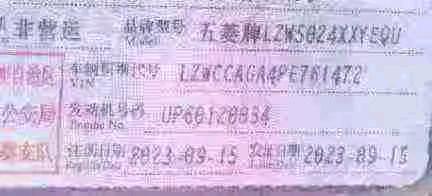 非营运 品牌型号 五菱牌LZW5024XXYEQU
Model
车辆识别代号 LZWCCAGA4PE761472
VIN
公安局 发动机号码 UP60120834
Engine No.
注册日期 2023-09-15 发证日期 2023-09-15